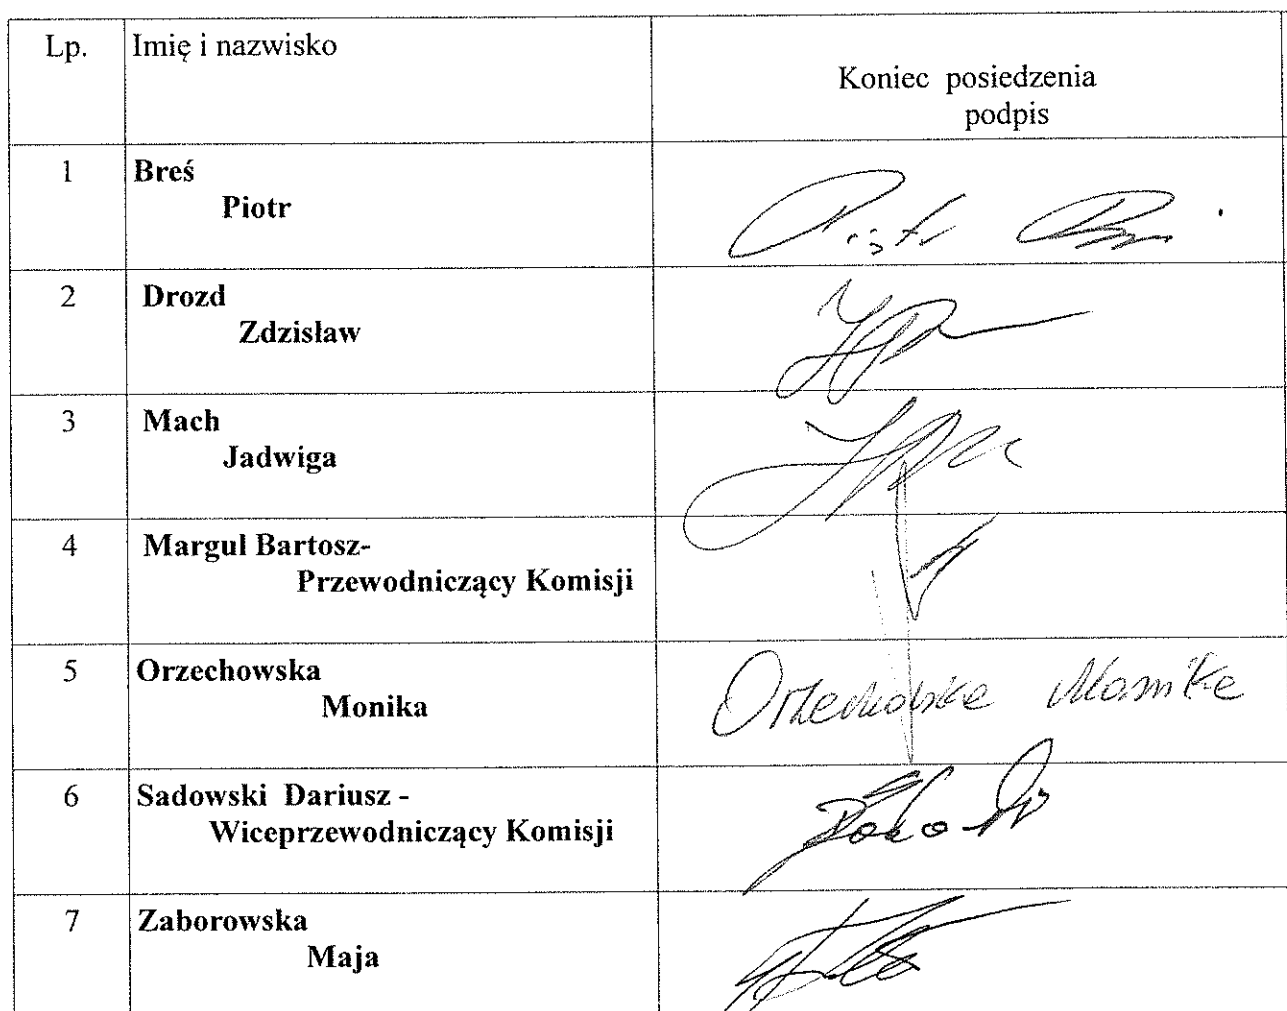 Lp.
Imię i nazwisko
Koniec posiedzenia
podpis
1
Breś
Piotr
Piotr
2
Drozd
Zdzisław
3
Mach
Jadwiga
4
Margul Bartosz-
Przewodniczący Komisji
5
Orzechowska
Monika
Orzechowska Monika
6
Sadowski Dariusz -
Wiceprzewodniczący Komisji
7
Zaborowska
Maja